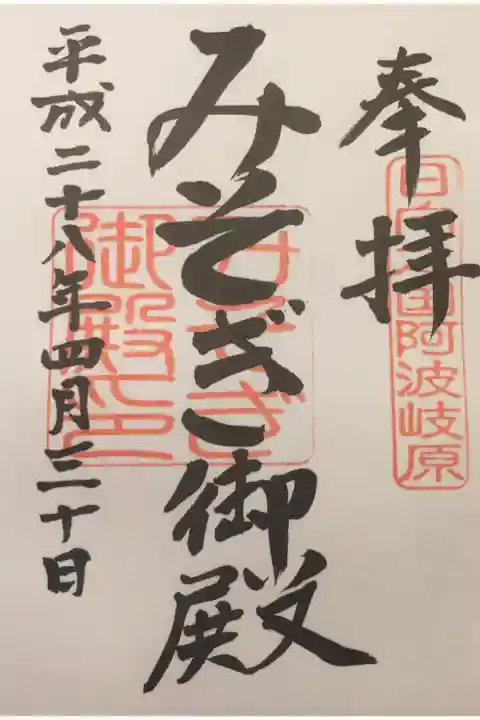 奉拝
日向国阿波岐原
みそぎ御殿
みそぎ御殿印
平成二十八年四月三十日